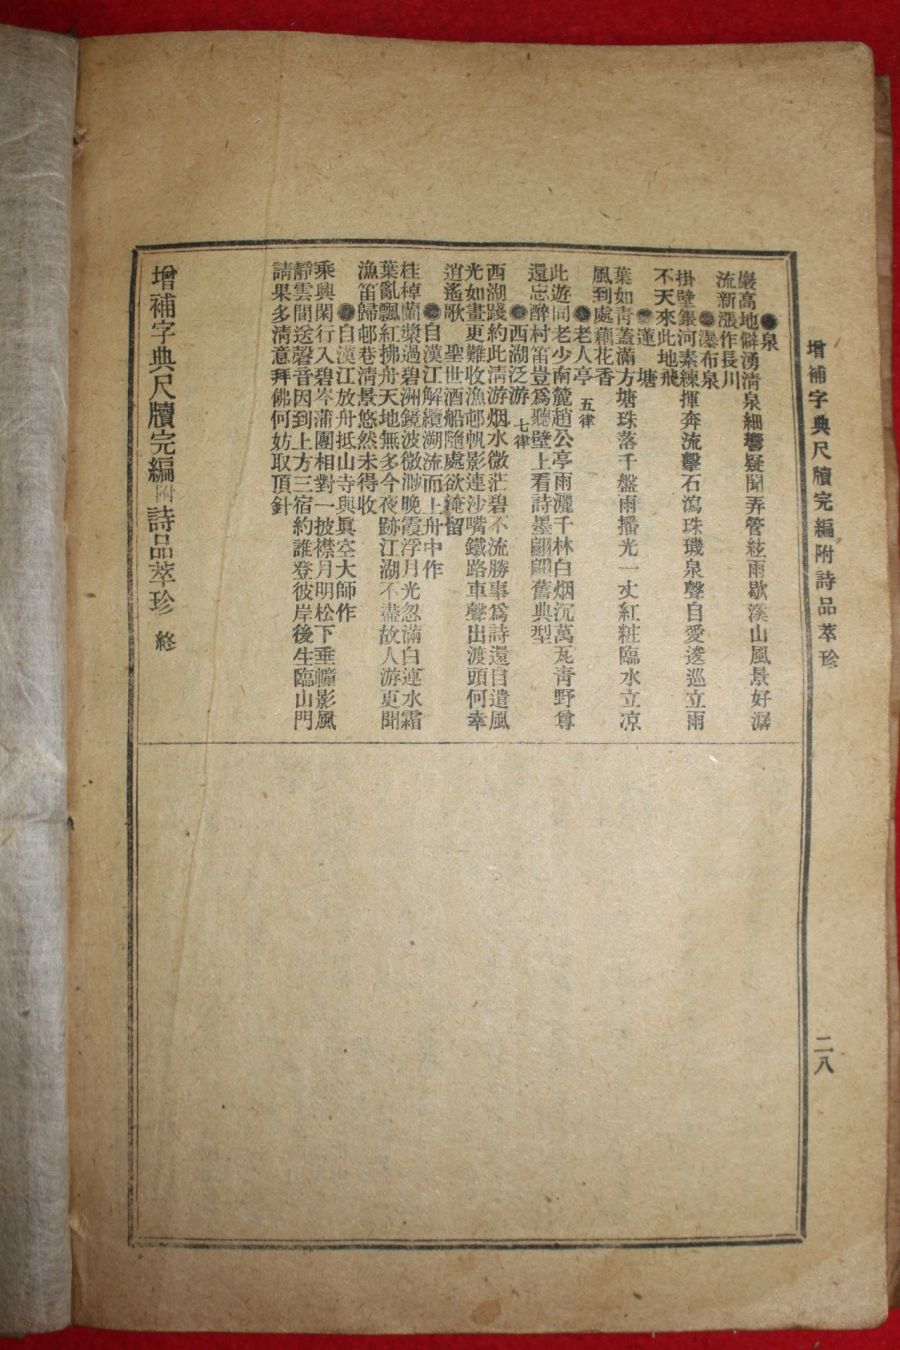 增補字典尺牘完編附詩品萃珍
二八
●泉
巖高地僻湧淸泉細響疑聞弄管絃雨歇溪山風景好潺
流新漲作長川
●瀑布泉
掛壁銀河素練揮奔流擊石瀉珠璣泉聲自愛逡巡立雨
不天來此地飛
●蓮塘
葉如靑蓋滿方塘珠落千盤雨播光一丈紅粧臨水立凉
風到處藕花香
●老人亭 五律
此遊同老少南麓趙公亭雨灑千林白烟沉萬瓦靑野尊
還忘醉村笛豈爲聽壁上看詩墨翩翩舊典型
●西湖泛游 七律
西湖踐約此淸游烟水微茫碧不流勝事爲詩還自遣風
光如畫更難收漁邨帆影連沙嘴鐵路車聲出渡頭何幸
逍遙歌聖世酒船隨處欲淹留
●自漢江解纜溯流而上舟中作
桂棹蘭槳過碧洲鏡波微渺晚霞浮月光忽滿白蓮水霜
葉亂飄紅拂舟天地無多今夜跡江湖不盡故人游更聞
漁笛歸邨巷淸景悠然未得收
●自漢江放舟抵山寺與眞空大師作
乘興閑行入碧岑蒲團相對一披襟月明松下垂幢影風
靜雲間送磬音因到上方三宿約誰登彼岸後生臨山門
請果多淸意拜佛何妨取頂針
增補字典尺牘完編附詩品萃珍 終